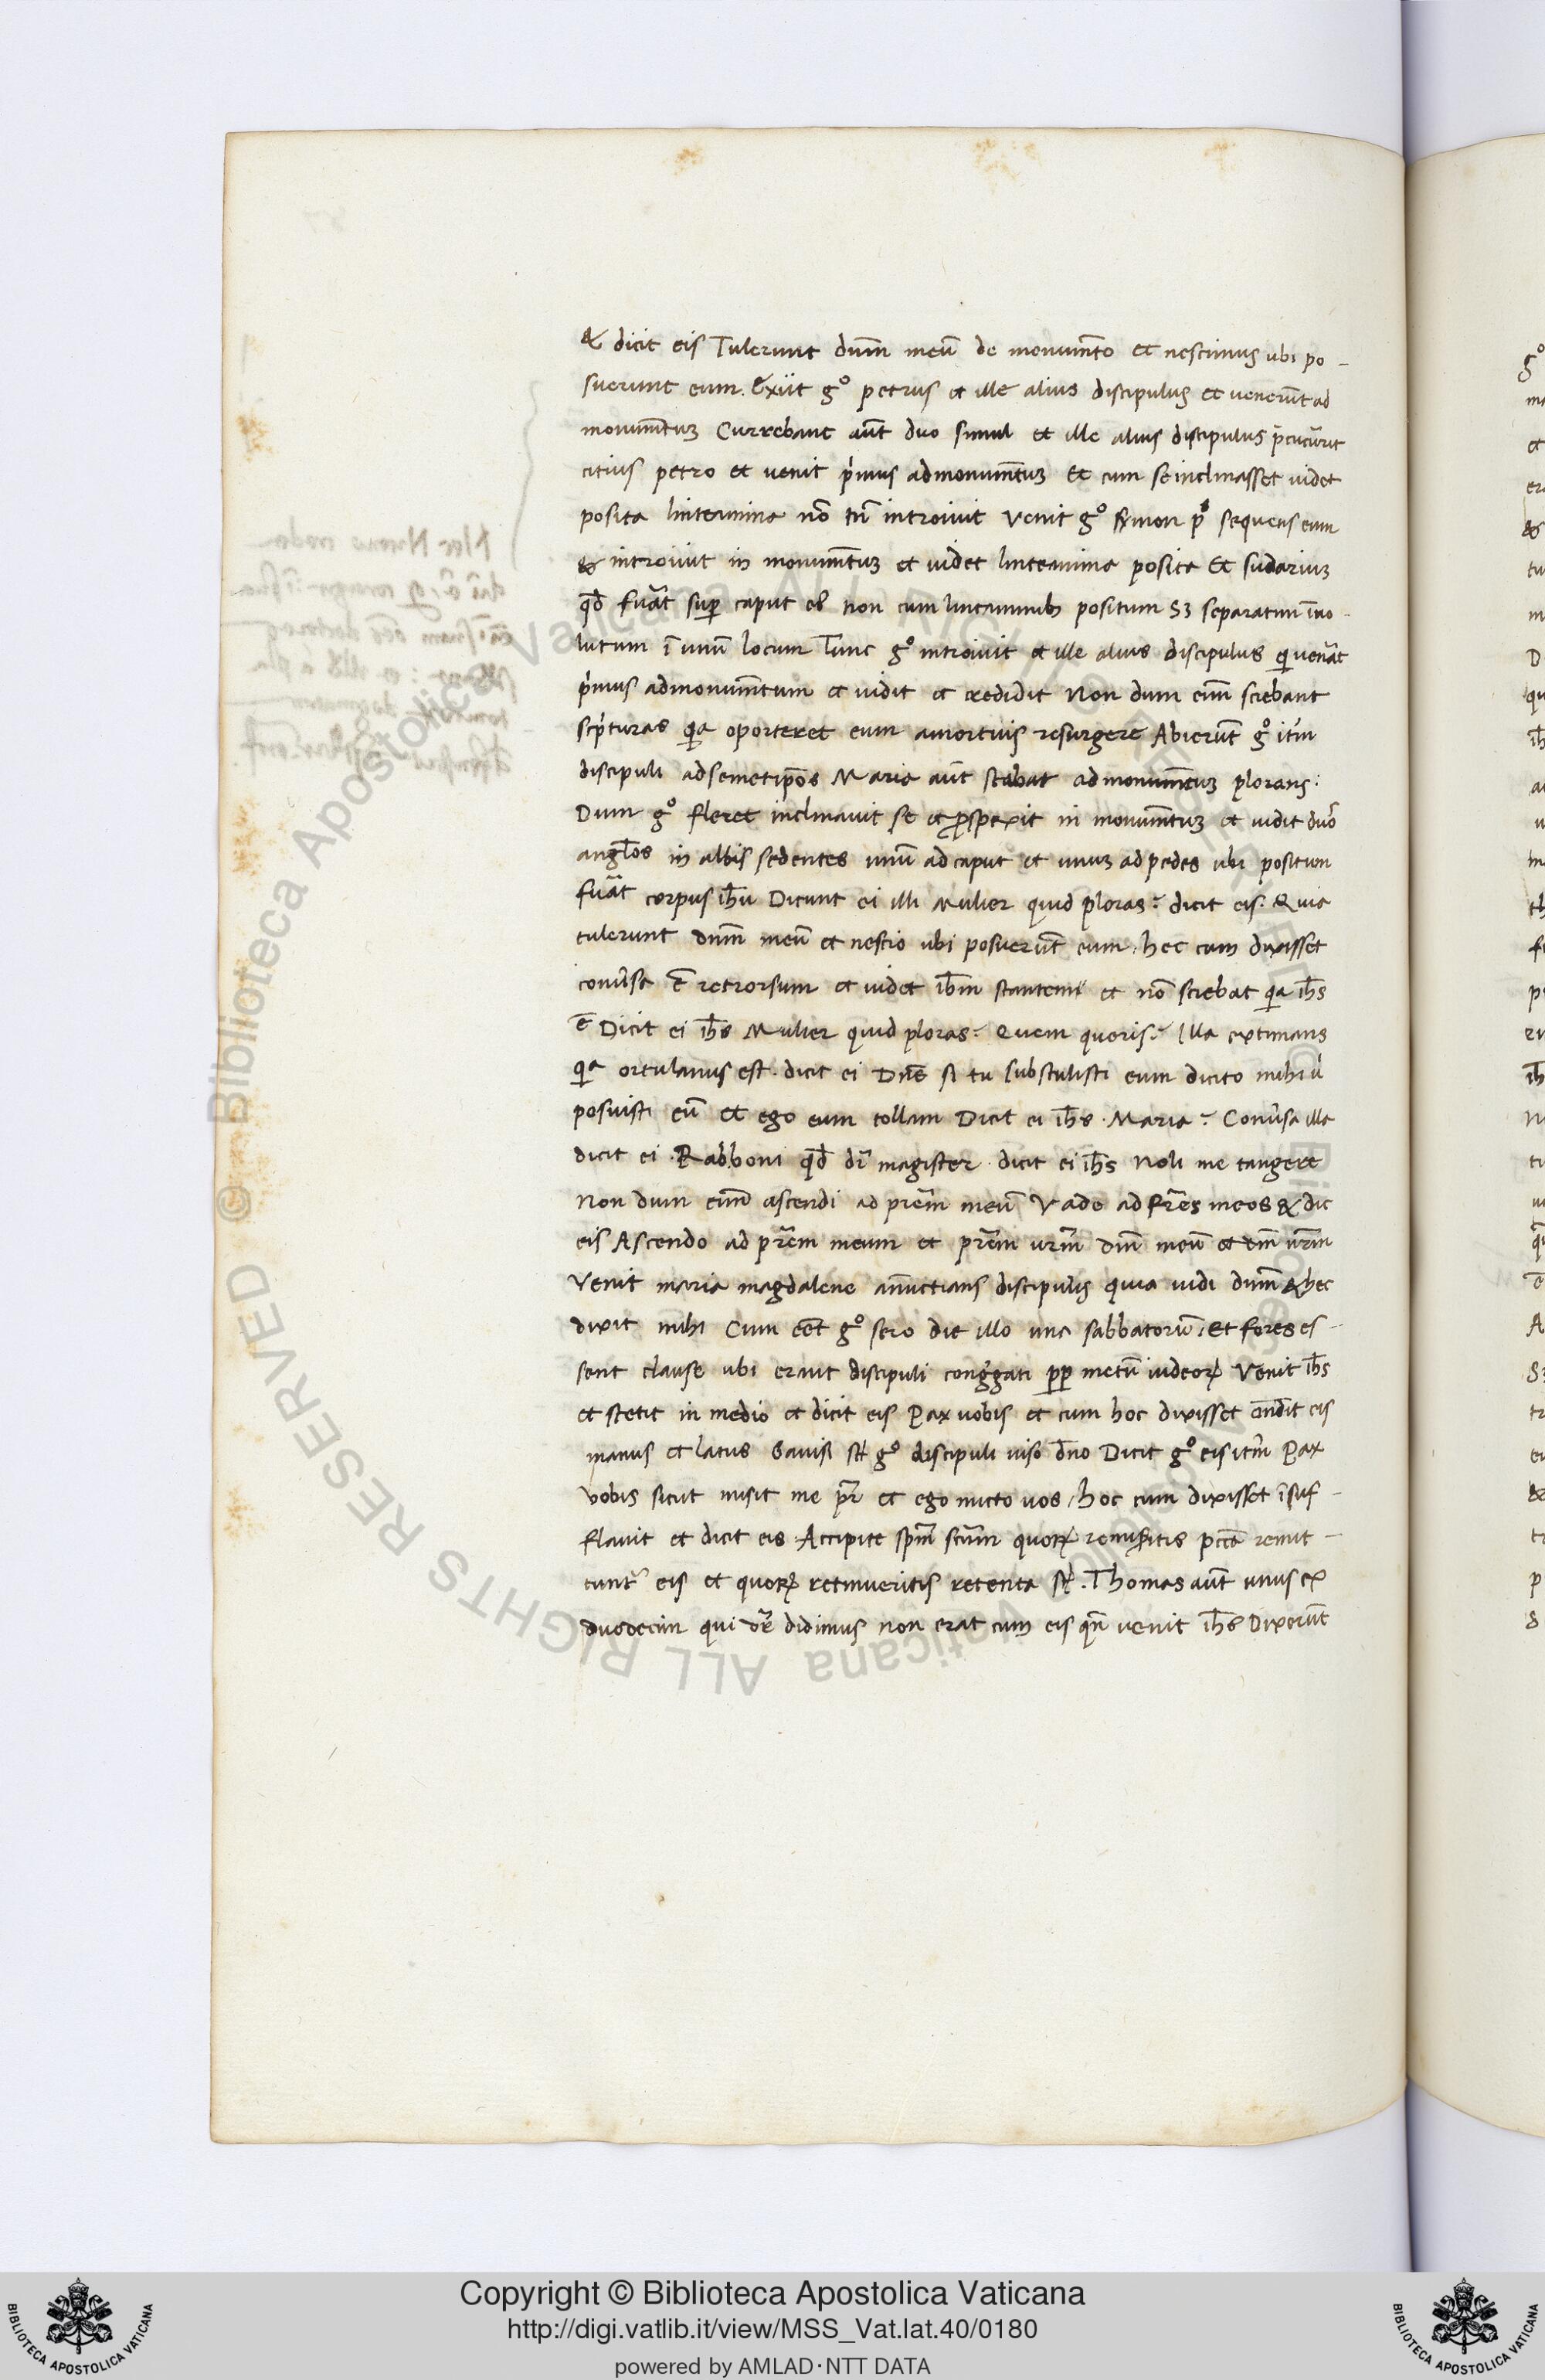 & dicit eis Tulerunt dnm̄ meū de monum̄to et nescimus ubi po-
suerunt eum. Exiit g° petrus et ille alius discipulus et venerūt ad
monum̄tuꝫ Currebant aūt duo simul et ille alius discipulus p̄cucurit
citius petro et venit p̍mus ad monum̄tuꝫ Et cum se inclinasset videt
posita linteamina nō tn̄ introivit Venit g° symon sequens eum
& introivit in monum̄tuꝫ et videt linteamina posita Et sudariuꝫ
qd̄ fuāt sup̱ caput eꝰ non cum linteaminibꝫ positum Sꝫ separatim īuo-
lutum ī unū locum Tunc g° introivit et ille alius discipulus qi venāt
p̍mus ad monum̄tum et vidit et credidit Non dum em̄ sciebant
sc̍pturas qia oporteret eum amortuis resurgere Abierūt g° itm̄
discipuli ad semetip̄os Maria aūt stabat ad monum̄tuꝫ plorans:
Dum g° fleret inclinavit se et ꝓspexit in monum̄tuꝫ et vidit duo
angl̄os in albis sedentes unū ad caput et unuꝫ ad pedes ubi positum
fuāt corpus ih̄u Dicunt ei illi Mulier quid ploras? dicit eis. Quia
tulerunt dnm̄ meū et nescio ubi posuerūt eum. hec cum dixisset
conv̍sa ē retrorsum et videt ih̄m stantem et nō sciebat qia ih̄s
ē Dicit ei ih̄s Mulier quid ploras? Quem queris? Illa extimans
qia ortulanus est. dicit ei Dn̄e si tu substulisti eum dicito mihi u̍
posuisti eū et ego eum tollam Dicit ei ih̄s. Maria? Conv̍sa illa
dicit ei. Rabboni qd̄ dr̄ magister. dicit ei ih̄s Noli me tangere
Non dum em̄ ascendi ad prēm meū Vade ad frēs meos & dic
eis Ascendo ad prēm meum et prēm urm̄ dm̄ meū et dm̄ urm̄
Venit maria magdalene an̄uctians discipulis quia vidi dnm̄ & hec
dixit mihi Cum eēt g° sero die illo una sabbatorū. Et fores es-
sent clause ubi erant discipuli cong̍gati ꝓp̱ metū iudeoꝝ Venit ih̄s
et stetit in medio et dicit eis Pax vobis et cum hoc dixisset on̄dit eis
manus et latus Gavisi st̄ g° discipuli viso dn̄o Dicit g° eis itm̄ Pax
vobis sicut misit me pr̄ et ego micto vos. hoc cum dixisset īsuf-
flavit et dicit eis. Accipite spm̄ scm̄ quoꝝ remiseritis pctā remit-
tuntr̄ eis et quoꝝ retinueritis retenta st̄. Thomas aūt unus ex
duodecim qui dr̄ didimus non erat cum eis qn̄ venit ih̄s Dixerūt
Copyright © Biblioteca Apostolica Vaticana
http://digi.vatlib.it/view/MSS_Vat.lat.40/0180
powered by AMLAD·NTT DATA
BIBLIOTECA APOSTOLICA VATICANA
BIBLIOTECA APOSTOLICA VATICANA
© Biblioteca Apostolica Vaticana ALL RIGHTS RESERVED